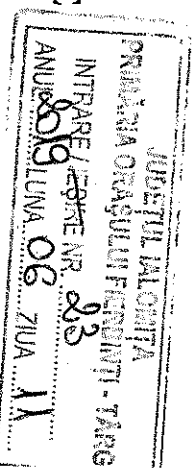 JUDEȚUL IALOMIȚA
PRIMĂRIA ORAȘULUI FIERBINȚI - TÂRG
INTRARE / IEȘIRE NR. 23
ANUL 8619 LUNA 06 ZIUA 11